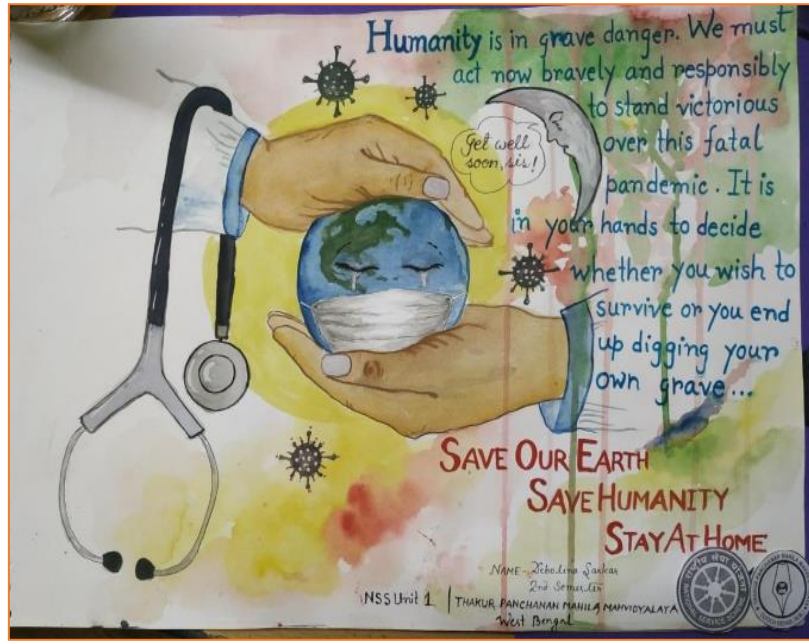 Humanity is in grave danger. We must
act now bravely and responsibly
to stand victorious
over this fatal
pandemic. It is
in your hands to decide
whether you wish to
survive or you end
up digging your
own grave...
Get well
soon, sis!
SAVE OUR EARTH
SAVE HUMANITY
STAY AT HOME
NAME - Debolina Sarkar
2nd Semester
NSS Unit 1 | THAKUR PANCHANAN MAHILA MAHVIDYALAYA
West Bengal